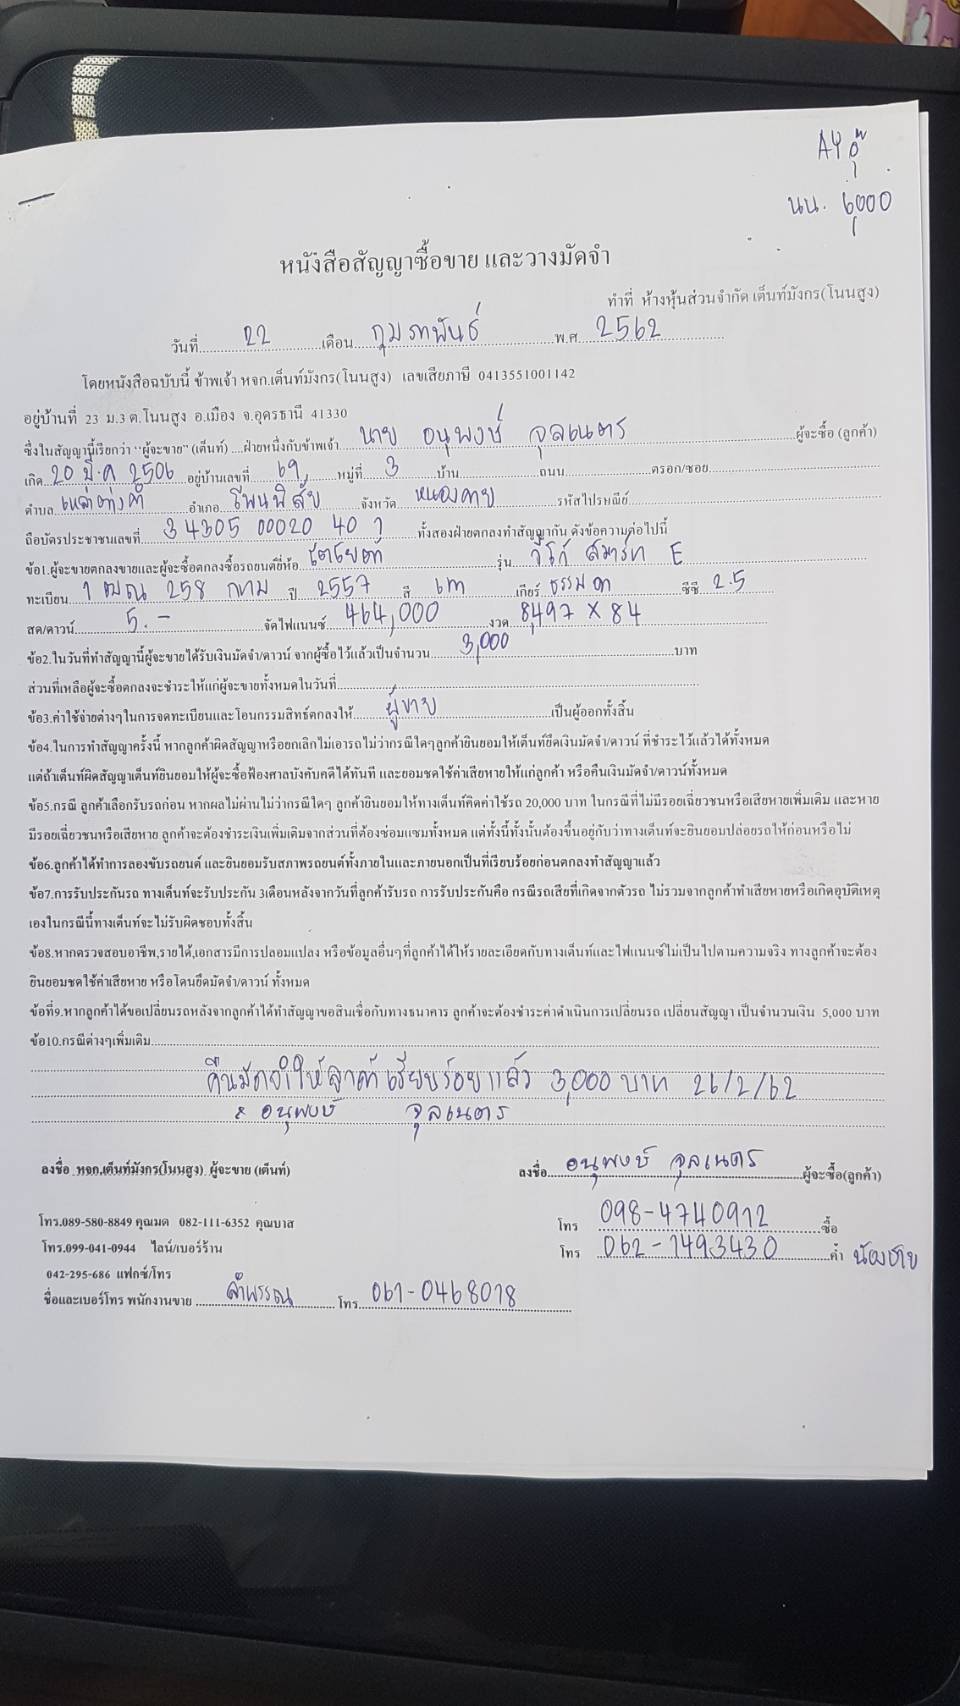 AY อุ๊
นน. 6,000
หนังสือสัญญาซื้อขาย และวางมัดจำ
ทำที่ ห้างหุ้นส่วนจำกัด เต็นท์มังกร(โนนสูง)
วันที่ 22 เดือน กุมภาพันธ์ พ.ศ. 2562
โดยหนังสือฉบับนี้ ข้าพเจ้า หจก.เต็นท์มังกร(โนนสูง) เลขเสียภาษี 0413551001142
อยู่บ้านที่ 23 ม.3 ต.โนนสูง อ.เมือง จ.อุดรธานี 41330
ซึ่งในสัญญานี้เรียกว่า "ผู้จะขาย" (เต็นท์) ....ฝ่ายหนึ่งกับข้าพเจ้า นาย อนุพงษ์ จุลเนตร ผู้จะซื้อ (ลูกค้า)
เกิด 20 มี.ค 2506 อยู่บ้านเลขที่ 69 หมู่ที่ 3 บ้าน ถนน ตรอก/ซอย
ตำบล เหล่าต่างคำ อำเภอ โพนพิสัย จังหวัด หนองคาย รหัสไปรษณีย์
ถือบัตรประชาชนเลขที่ 3 4305 00020 40 ทั้งสองฝ่ายตกลงทำสัญญากัน ดังข้อความต่อไปนี้
ข้อ1.ผู้จะขายตกลงขายและผู้จะซื้อตกลงซื้อรถยนต์ยี่ห้อ โตโยต้า รุ่น วีโก้ สมาร์ท E
ทะเบียน 1 ฒณ 258 กทม ปี 2557 สี เทา เกียร์ ธรรมดา ซีซี 2.5
สด/ดาวน์ 5.- จัดไฟแนนซ์ 464,000 งวด 8,497 x 84
ข้อ2.ในวันที่ทำสัญญานี้ผู้จะขายได้รับเงินมัดจำ/ดาวน์ จากผู้ซื้อไว้แล้วเป็นจำนวน 3,000 บาท
ส่วนที่เหลือผู้จะซื้อตกลงจะชำระให้แก่ผู้จะขายทั้งหมดในวันที่
ข้อ3.ค่าใช้จ่ายต่างๆในการจดทะเบียนและโอนกรรมสิทธ์ตกลงให้ ผู้ขาย เป็นผู้ออกทั้งสิ้น
ข้อ4.ในการทำสัญญาครั้งนี้ หากลูกค้าผิดสัญญาหรือยกเลิกไม่เอารถไม่ว่ากรณีใดๆลูกค้ายินยอมให้เต็นท์ยึดเงินมัดจำ/ดาวน์ ที่ชำระไว้แล้วได้ทั้งหมด
แต่ถ้าเต็นท์ผิดสัญญาเต็นท์ยินยอมให้ผู้จะซื้อฟ้องศาลบังคับคดีได้ทันที และยอมชดใช้ค่าเสียหายให้แก่ลูกค้า หรือคืนเงินมัดจำ/ดาวน์ทั้งหมด
ข้อ5.กรณี ลูกค้าเลือกรับรถก่อน หากผลไม่ผ่านไม่ว่ากรณีใดๆ ลูกค้ายินยอมให้ทางเต็นท์คิดค่าใช้รถ 20,000 บาท ในกรณีที่ไม่มีรอยเฉี่ยวชนหรือเสียหายเพิ่มเติม และหาย
มีรอยเฉี่ยวชนหรือเสียหาย ลูกค้าจะต้องชำระเงินเพิ่มเติมจากส่วนที่ต้องซ่อมแซมทั้งหมด แต่ทั้งนี้ทั้งนั้นต้องขึ้นอยู่กับว่าทางเต็นท์จะยินยอมปล่อยรถให้ก่อนหรือไม่
ข้อ6.ลูกค้าได้ทำการลองขับรถยนต์ และยินยอมรับสภาพรถยนต์ทั้งภายในและภายนอกเป็นที่เรียบร้อยก่อนตกลงทำสัญญาแล้ว
ข้อ7.การรับประกันรถ ทางเต็นท์จะรับประกัน 3เดือนหลังจากวันที่ลูกค้ารับรถ การรับประกันคือ กรณีรถเสียที่เกิดจากตัวรถ ไม่รวมจากลูกค้าทำเสียหายหรือเกิดอุบัติเหตุ
เองในกรณีนี้ทางเต็นท์จะไม่รับผิดชอบทั้งสิ้น
ข้อ8.หากตรวจสอบอาชีพ,รายได้,เอกสารมีการปลอมแปลง หรือข้อมูลอื่นๆที่ลูกค้าได้ให้รายละเอียดกับทางเต็นท์และไฟแนนซ์ไม่เป็นไปตามความจริง ทางลูกค้าจะต้อง
ยินยอมชดใช้ค่าเสียหาย หรือโดนยึดมัดจำ/ดาวน์ ทั้งหมด
ข้อที่9.หากลูกค้าได้ขอเปลี่ยนรถหลังจากลูกค้าได้ทำสัญญาขอสินเชื่อกับทางธนาคาร ลูกค้าจะต้องชำระค่าดำเนินการเปลี่ยนรถ เปลี่ยนสัญญา เป็นจำนวนเงิน 5,000 บาท
ข้อ10.กรณีต่างๆเพิ่มเติม
คืนมัดจำให้ลูกค้าเรียบร้อยแล้ว 3,000 บาท 26/2/62
x อนุพงษ์ จุลเนตร
ลงชื่อ หจก.เต็นท์มังกร(โนนสูง) ผู้จะขาย (เต็นท์) ลงชื่อ อนุพงษ์ จุลเนตร ผู้จะซื้อ(ลูกค้า)
โทร.089-580-8849 คุณมด 082-111-6352 คุณบาส โทร 098-4740912 ซื้อ
โทร.099-041-0944 ไลน์/เบอร์ร้าน โทร 062-1493430 ค้ำ น้องชาย
042-295-686 แฟกซ์/โทร
ชื่อและเบอร์โทร พนักงานขาย ลำพรรณ โทร 061-0468018